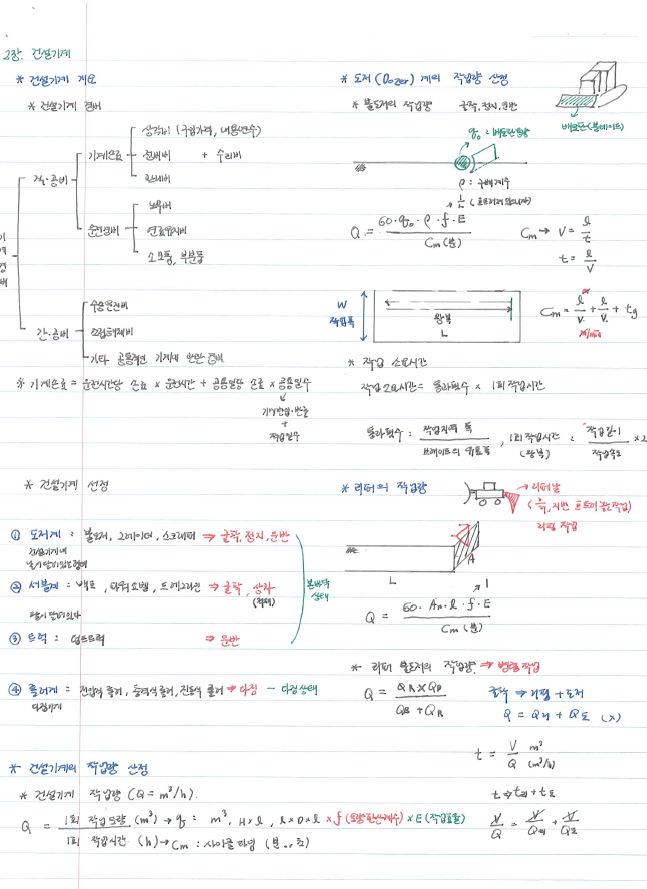 2장. 건설기계
* 건설기계 개요
* 건설기계 경비
직·공비
기계손료
상각비 (구입가격, 내용연수)
정비비 + 수리비
관리비
운전경비
노무비
연료유지비
소모품, 부분품
간·공비
수송운반비
조립해체비
기타 공통적인 기계에 관한 경비
※ 기계손료 = 운전시간당 손료 × 운전시간 + 공용일당 손료 × 공용일수
기계반입·반출
+
작업일수
* 건설기계 선정
① 도저계 : 불도저, 그레이더, 스크레이퍼 ⇒ 굴착, 정지, 운반
② 셔블계 : 백호, 파워쇼벨, 드레그라인 ⇒ 굴착, 상차
(적재)
③ 트럭 : 덤프트럭 ⇒ 운반
본바닥
상태
④ 롤러계 : 전압식 롤러, 충격식 롤러, 진동식 롤러 ⇒ 다짐 - 다짐상태
다짐기계
* 건설기계의 작업량 산정
* 건설기계 작업량 (Q = m³/h).
Q = 1회 작업토량 (m³) → q : m³, H×l, l×D×l × f (토량환산계수) × E (작업효율)
1회 작업시간 (h) → Cm : 사이클타임 (분 or 초)
* 도저 (Dozer) 계의 작업량 산정
* 불도저의 작업량 굴착, 정지, 운반
배토판 (블레이드)
q₀ : 배토판용량
ρ : 구배계수
Q = 60·q₀·ρ·f·E / Cm (분)
Cm → V = l/t
t = l/V
W
작업폭
왕복
L
Cm = l/V + l/V + tg
m/min
* 작업 소요시간
작업소요시간 = 통과횟수 × 1회 작업시간
통과횟수 : 작업지역 폭 / 브레이드의 유효폭 , 1회 작업시간 : 작업길이 / 작업속도 × 2
(왕복)
* 리퍼의 작업량
→ 리퍼날
리핑 작업
A
L
Q = 60·An·l·f·E / Cm (분)
* 리퍼 불도저의 작업량 ⇒ 병행작업
Q = QR×QD / QR+QD
굴착 ⇒ 리핑 + 도저
Q = Q리 + Q도 (×)
t = V/Q m³ (m³/h)
t ⇒ t리 + t도
V/Q = V/Q리 + V/Q도